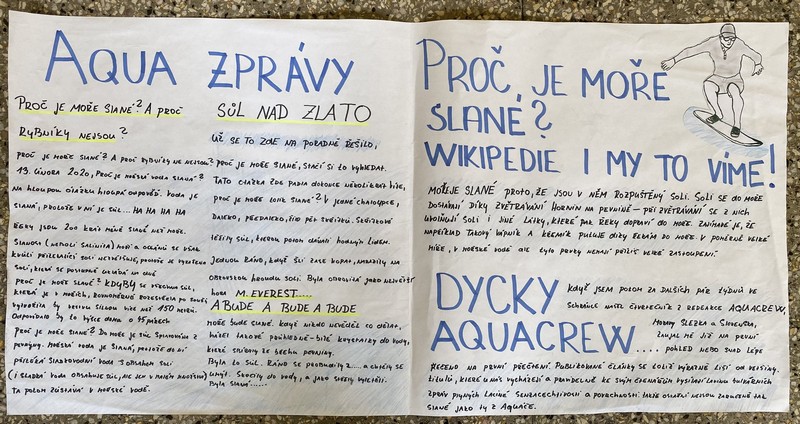 AQUA ZPRÁVY
PROČ JE MOŘE SLANÉ? A PROČ
RYBNÍKY NEJSOU?
PROČ JE MOŘE SLANÉ? A PROČ RYBNÍKY NE NEJSOU?
19. ÚNORA 2020, PROČ JE MOŘSKÁ VODA SLANÁ?
NA HLOUPOU OTÁZKU HLOUPÁ ODPOVĚĎ. VODA JE
SLANÁ, PROTOŽE V NÍ JE SŮL... HA HA HA HA
ŘEKY JSOU 200 KRÁT MÉNĚ SLANÉ NEŽ MOŘE.
SLANOST (NEBOLI SALINITA) MOŘÍ A OCEÁNŮ SE VŠAK
SOLI, KTERÁ SE POSTUPNĚ UKLÁDÁ NA DNĚ
PROČ JE MOŘE SLANÉ? KDYBY SE VŠECHNA SŮL,
KTERÁ JE V MOŘÍCH, ROVNOMĚRNĚ ROZESTŘELA PO SOUŠI,
VYTVOŘILA BY VRSTVU SILNOU VÍCE NEŽ 150 METRŮ.
ODPOVÍDALO BY TO VÝŠCE DOMU O 45 PATRECH
PROČ JE MOŘE SLANÉ? DO MOŘE JE SŮL SPLAVOVÁNA Z
PEVNINY. MOŘSKÁ VODA JE SLANÁ, PROTOŽE DO NÍ
PŘITÉKÁ SLADKOVODNÍ VODA S OBSAHEM SOLI
(I SLADKÁ VODA OBSAHUJE SŮL, ALE JEN V MALÉM MNOŽSTVÍ)
TA POTOM ZŮSTÁVÁ V MOŘSKÉ VODĚ.
SŮL NAD ZLATO
UŽ SE TO ZDE NA PORADNĚ ŘEŠILO,
PROČ JE MOŘE SLANÉ, STAČÍ SI TO VYHLEDAT.
TATO OTÁZKA ZDE PADLA DOKONCE NĚKOLIKRÁT VÍCE,
PROČ JE MOŘE SLANÉ? V JEDNÉ CHALOUPCE,
DALEKO, PŘEDALEKO, ŽILO PĚT SKŘÍTKŮ. SKŘÍTKOVÉ
TĚŽILI SŮL, KTEROU POTOM DÁVALI HODNÝM LIDEM.
JEDNOU RÁNO, KDYŽ ŠLI ZASE KOPAT, NARAZILI NA
OBROVSKOU HROUDU SOLI. BYLA OBROVSKÁ JAKO NEJVĚTŠÍ
HORA M. EVEREST.....
A BUDE A BUDE A BUDE
MOŘE BUDE SLANÉ. KDYŽ NIKDO NEVĚDĚL CO DĚLAT,
HÁZEL TAKOVÉ PRŮHLEDNĚ-BÍLÉ KRYSTALKY DO VODY,
KTERÉ SBÍRALY SE BĚHEM PEVNINY.
BYLA TO SŮL. RÁNO SE PROBUDILY Z.... A CHTĚLY SE
UMÝT. SKOČILY DO VODY, A JAKO SKOČILY VYLEZLI.
BYLA SLANÁ.....
PROČ, JE MOŘE
SLANÉ?
WIKIPEDIE I MY TO VÍME!
MOŘE JE SLANÉ PROTO, ŽE JSOU V NĚM ROZPUŠTĚNÝ SOLI. SOLI SE DO MOŘE
DOSTÁVAJÍ DÍKY ZVĚTRÁVÁNÍ HORNIN NA PEVNINĚ – PŘI ZVĚTRÁVÁNÍ SE Z NICH
UVOLŇUJÍ SOLI I JINÉ LÁTKY, KTERÉ PAK ŘEKY DOPRAVÍ DO MOŘE. ZNAMENÁ JE, ŽE
NAPŘÍKLAD TAKOVÝ VÁPNÍK A KŘEMÍK PUTUJE DÍKY ŘEKÁM DO MOŘE V POMĚRNĚ VELKÉ
MÍŘE, V MOŘSKÉ VODĚ ALE TYTO PRVKY NEMAJÍ PŘÍLIŠ VELKÉ ZASTOUPENÍ.
DYCKY
AQUACREW....
KDYŽ JSEM POTOM ZA DALŠÍCH PÁR TÝDNŮ VE
SCHRÁNCE NAŠEL ČTVRTLETNÍK Z REDAKCE AQUACREW,
MORAVY SLEZKA A SLOVENSKA,
ZAUJAL MĚ JIŽ NA PRVNÍ
..... POHLED NEBO SNAD LÉPE
ŘEČENO NA PRVNÍ PŘEČTENÍ. PUBLIKOVANÉ ČLÁNKY SE TOTIŽ VÝRAZNĚ LIŠÍ OD VĚTŠINY
TITULŮ, KTERÉ U NÁS VYCHÁZEJÍ A PRAVIDELNĚ KE SVÝM ČTENÁŘŮM VYSÍLAJÍ LAVINU BULVÁRNÍCH
ZPRÁV PLNÝCH LACINÉ SENZACECHTIVOSTI A POVRCHNOSTI.
SLANÉ JAKO TY Z AQUÁČE.